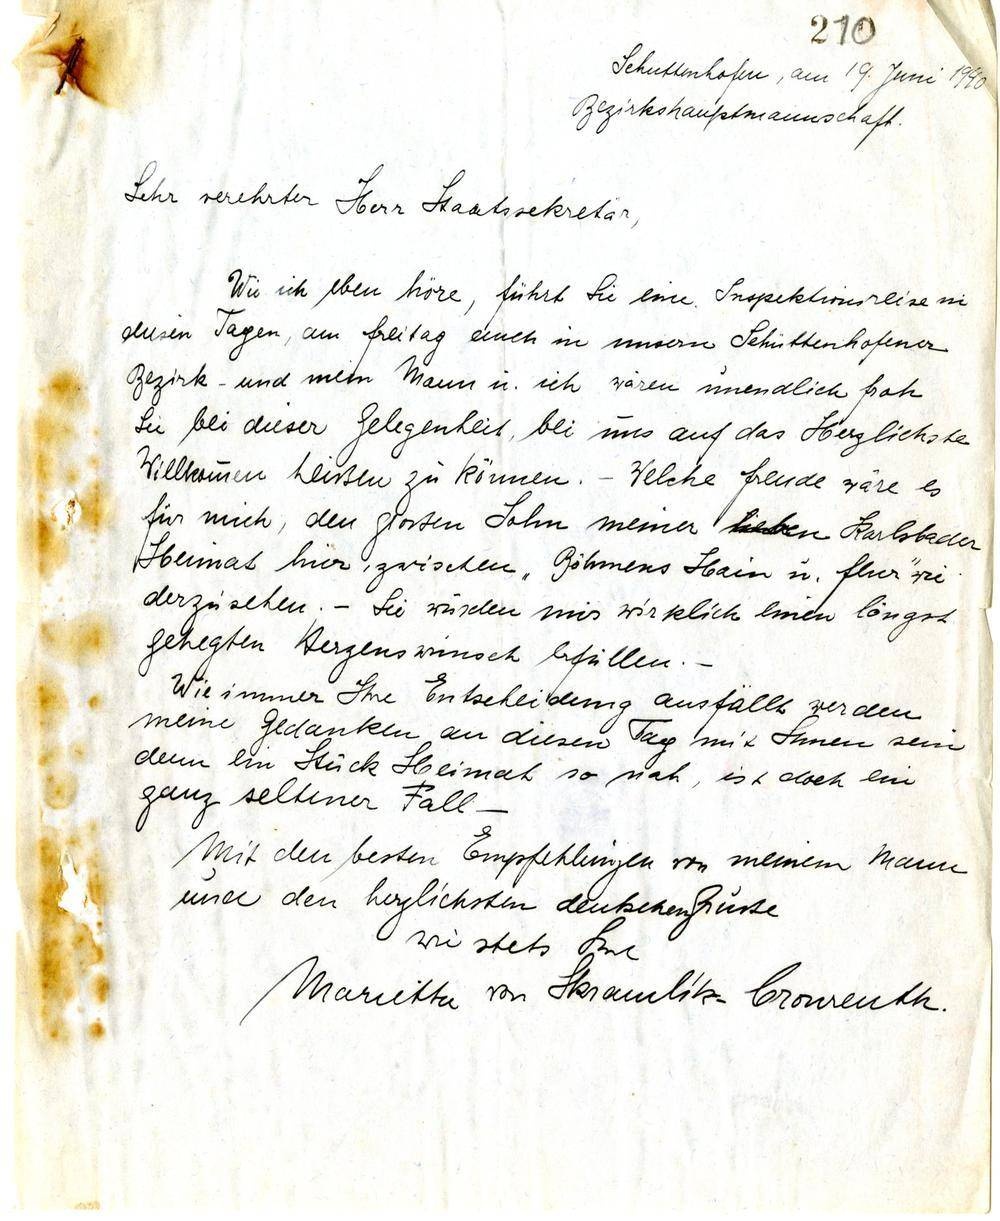 210
Schüttenhofen, am 19. Juni 1940
Bezirkshauptmannschaft.
Sehr verehrter Herr Staatssekretär,
Wie ich eben höre, führt Sie eine Inspektionsreise in
diesen Tagen, am Freitag auch in unsern Schüttenhofener
Bezirk - und mein Mann u. ich wären unendlich froh
Sie bei dieser Gelegenheit, bei uns auf das Herzlichste
Willkommen heißen zu können. - Welche Freude wäre es
für mich, den großen Sohn meiner lieben Karlsbader
Heimat hier, zwischen „Böhmens Hain u. Flur" wie-
derzusehen. - Sie würden mir wirklich einen längst
gehegten Herzenswunsch erfüllen. -
Wie immer Ihre Entscheidung ausfällt werden
meine Gedanken an diesen Tag mit Ihnen sein
denn ein Stück Heimat so nah, ist doch ein
ganz seltener Fall -
Mit den besten Empfehlungen von meinem Mann
und den herzlichsten deutschen Grüsse
wie stets Ihre
Marietta von Skramlik-Cronreuth.